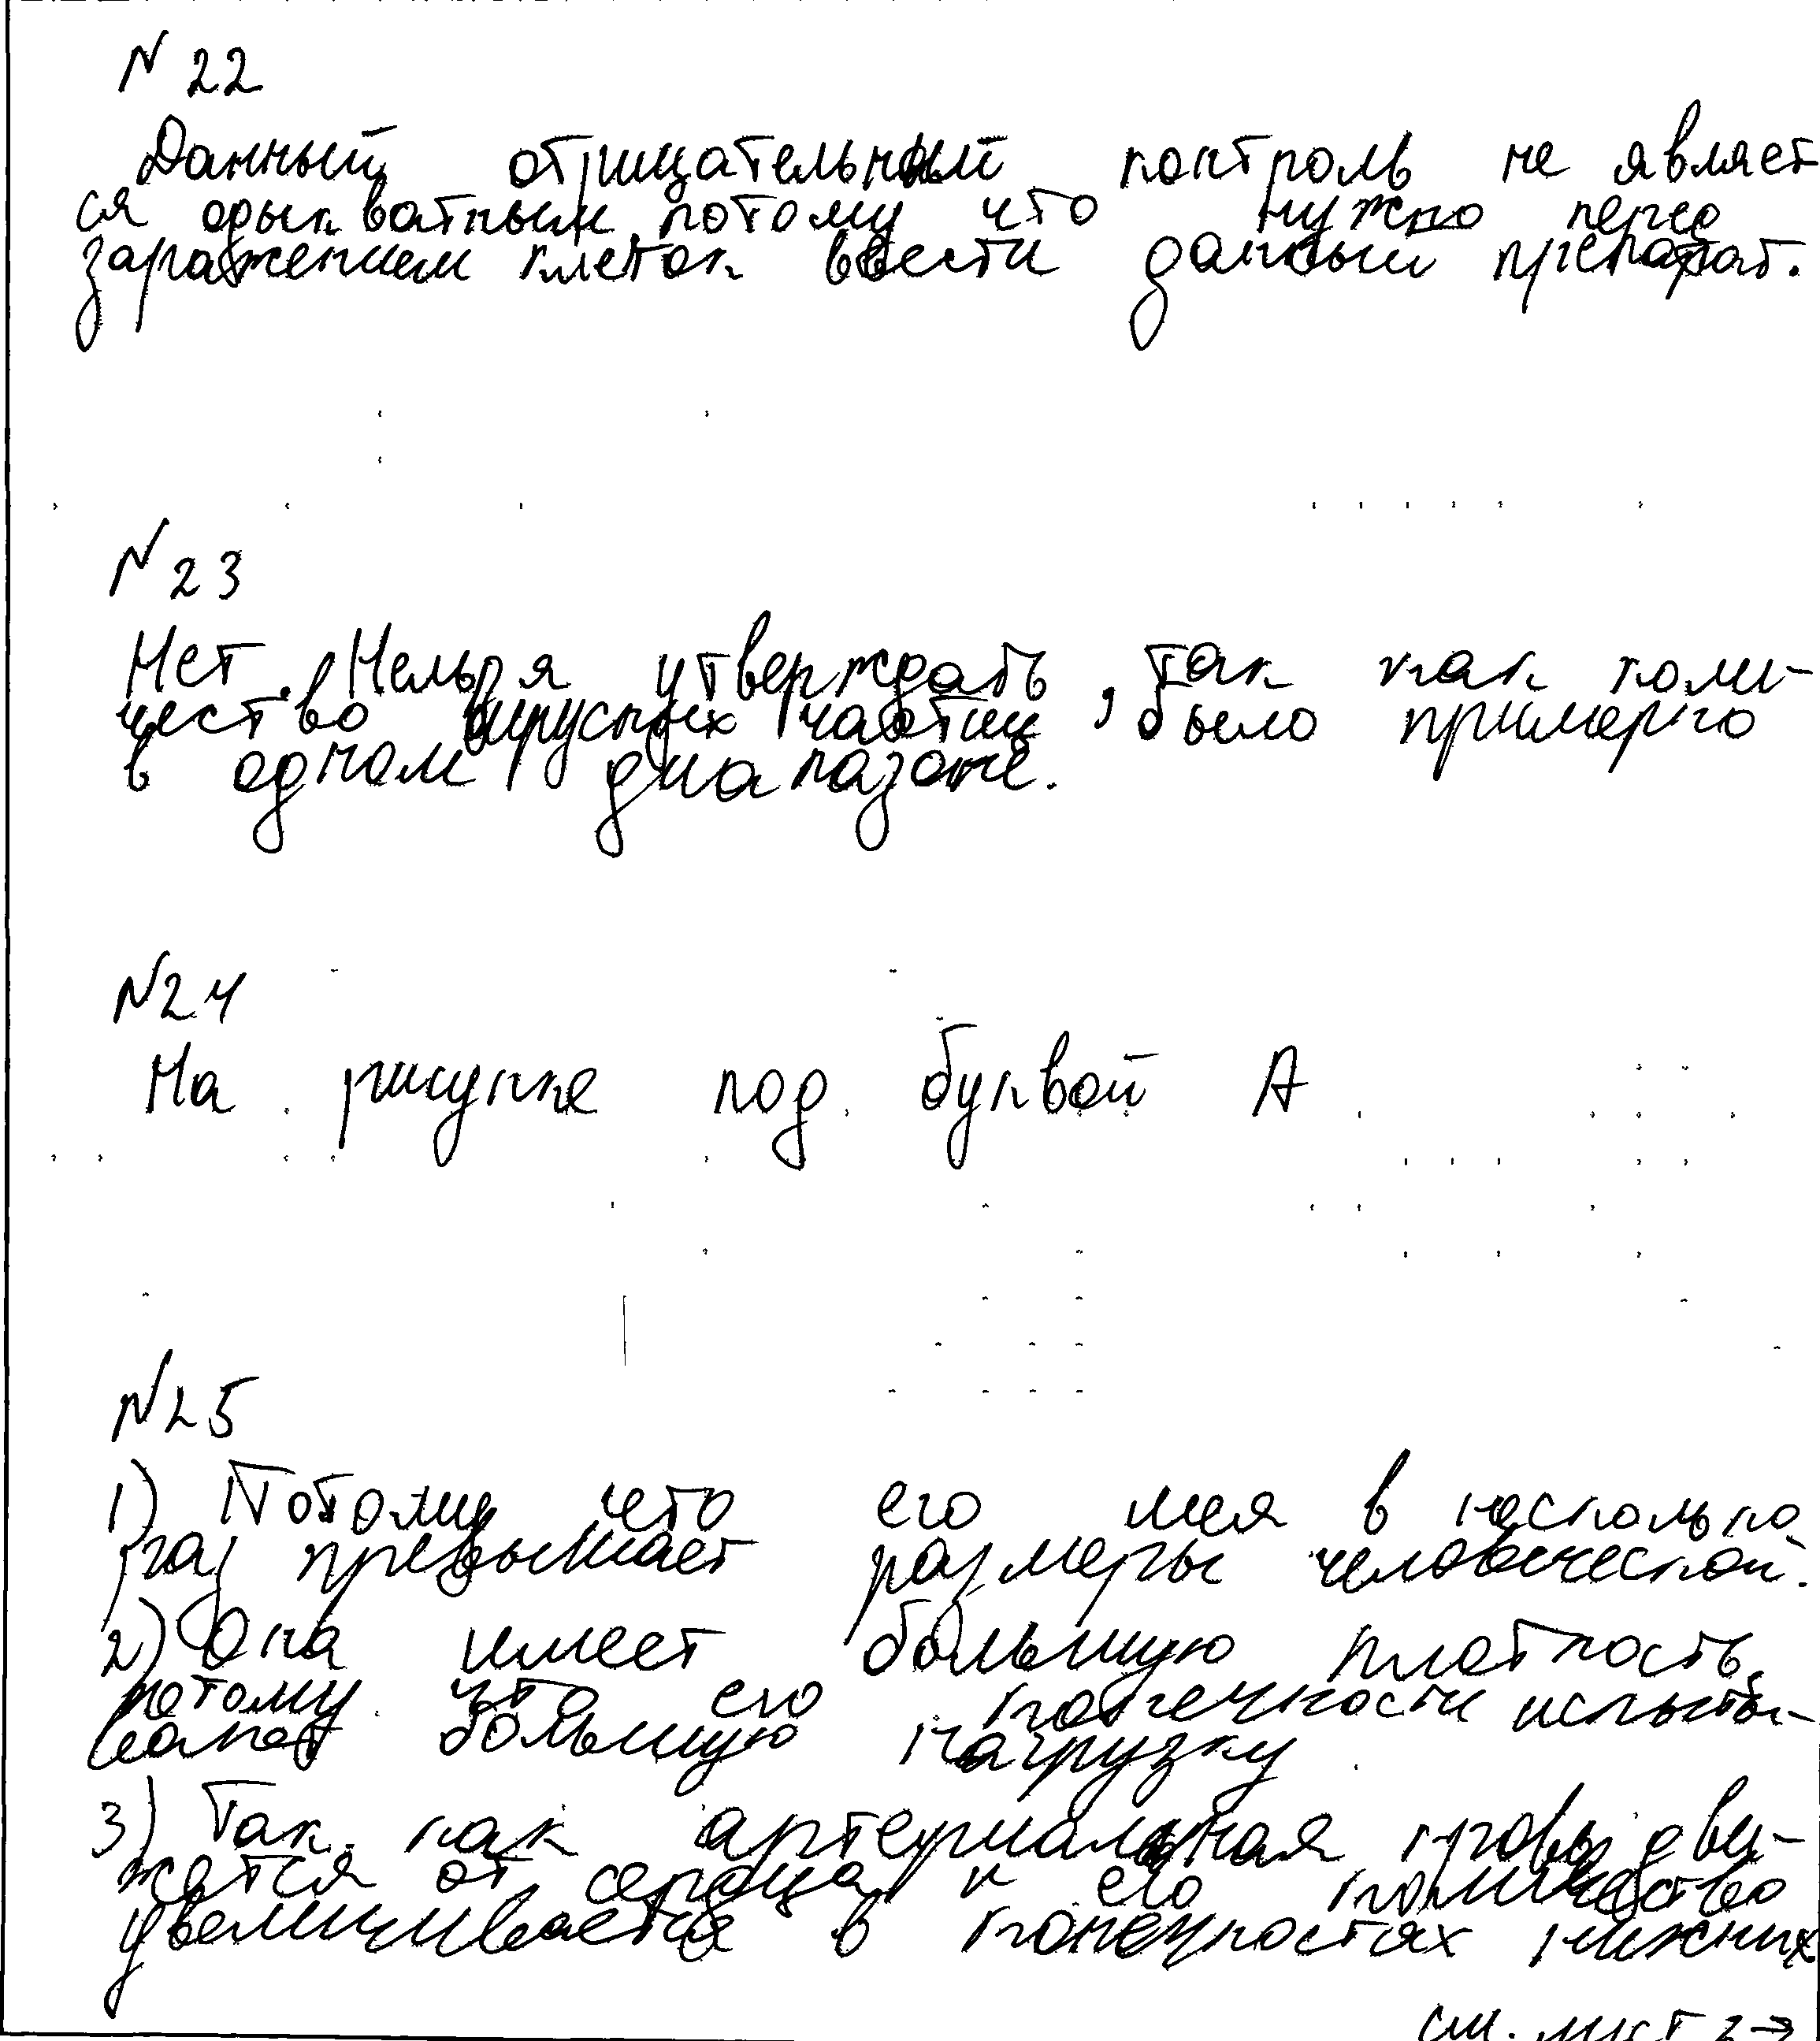 N 22
Данный отрицательный контроль не являет
ся адыкватным, потому что нужно перед
заражением клеток ввести данный препарат.
N 23
Нет. Нельзя утверждать, так как коли-
чество вирусных частиц, было примерно
в одном диапазоне.
N24
На рисунке под буквой А
N25
1) Потому что его шея в несколько
раз превышает размеры человеческой.
2) Она имеет большую плотность,
потому что его конечности испыты-
вают большую нагрузку
3) Так как артериальная кровь дви-
жется от сердца и его количество
увеличивается в конечностях нижних
см. лист 2→